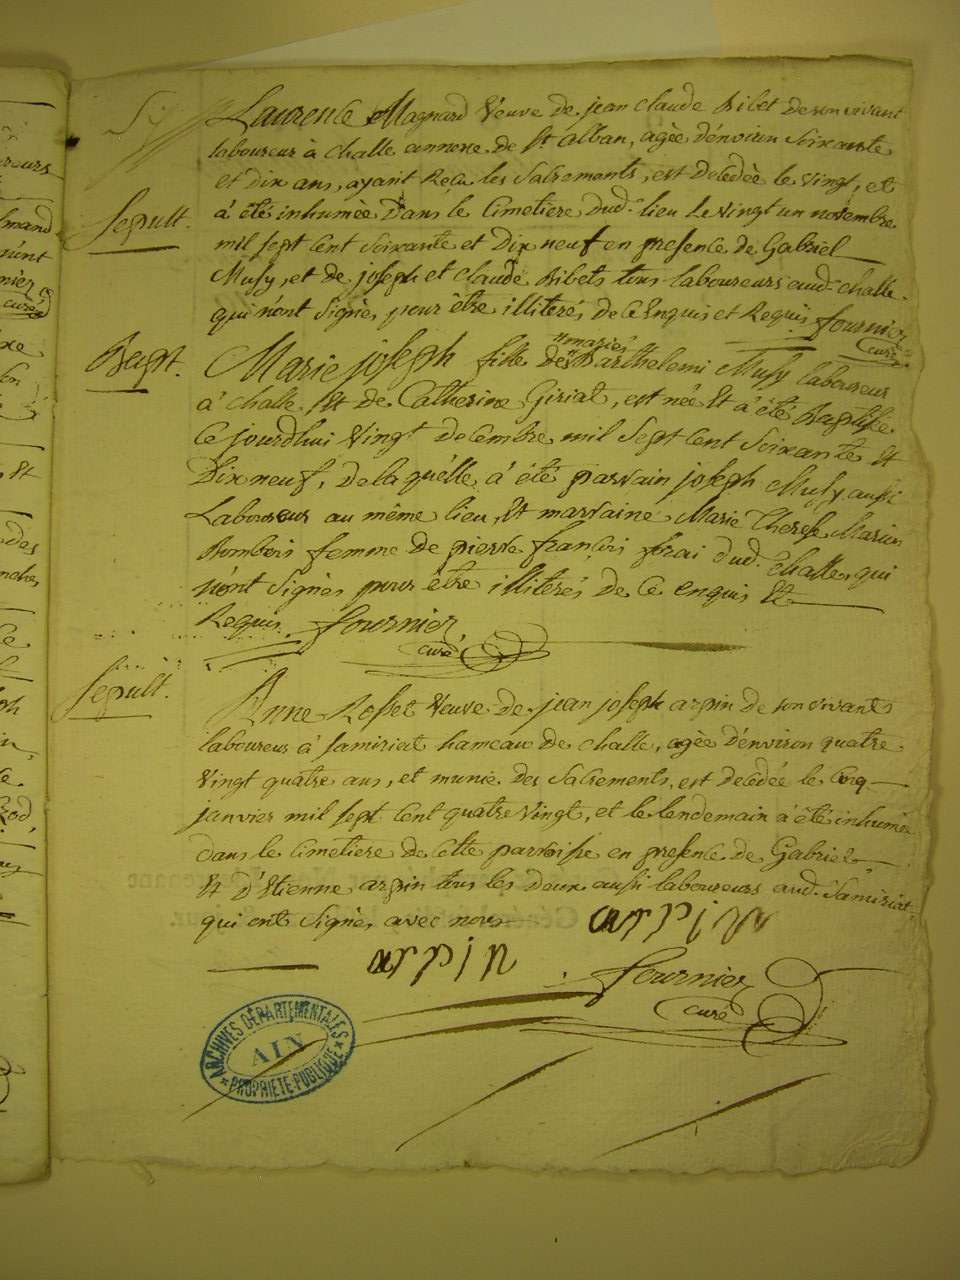 Laurence Magnard Veuve de jean claude Ribet de son vivant
laboureur à Challe annexe de St. Alban, agée d'énviron Soixante
et Dix ans, ayant Reçu les Sacrements, est décédée le vingt, et
Sepult.
à été inhumée Dans le Cimetiere dud. lieu le vingt un novembre
mil sept cent Soixante et Dix neuf en presence de Gabriel
Musy, et de joseph et claude Ribets tous laboureurs aud. Challe
qui n'ont Signés pour être illiterés de ce Enquis et Requis. fournier
curé
Bapt.
Marie joseph fille des mariés Barthelemi Musy laboureur
à Challe Et de Catherine Giriat, est née Et à été Baptisée
Ce jourdhui Vingt decembre mil Sept Cent Soixante Et
Dix neuf, de laquélle à été parrain joseph Musy aussi
Laboureur au même lieu, Et marraine Marie Therese Marin
femme de pierre françois dud. Challe, qui
n'ont Signés pour être illiterés de Ce enquis Et
Requis. fournier
curé
Sepult.
Anne Rosset Veuve de jean joseph arpin de son vivant
laboureur à Samiriat hameau de Challe, agée d'énviron quatre
Vingt quatre ans, et munie des Sacrements, est décédée le cinq
janvier mil sept Cent quatre Vingt, et le lendemain à été inhumée
dans le Cimetiere de Cette parroisse en presence de Gabriel
Et D'Etienne arpin tous les deux aussi laboureurs aud. Samiriat
qui ont Signés avec nous
arpin
arpin
fournier
curé
ARCHIVES DÉPARTEMENTALES
AIN
* PROPRIETE PUBLIQUE *